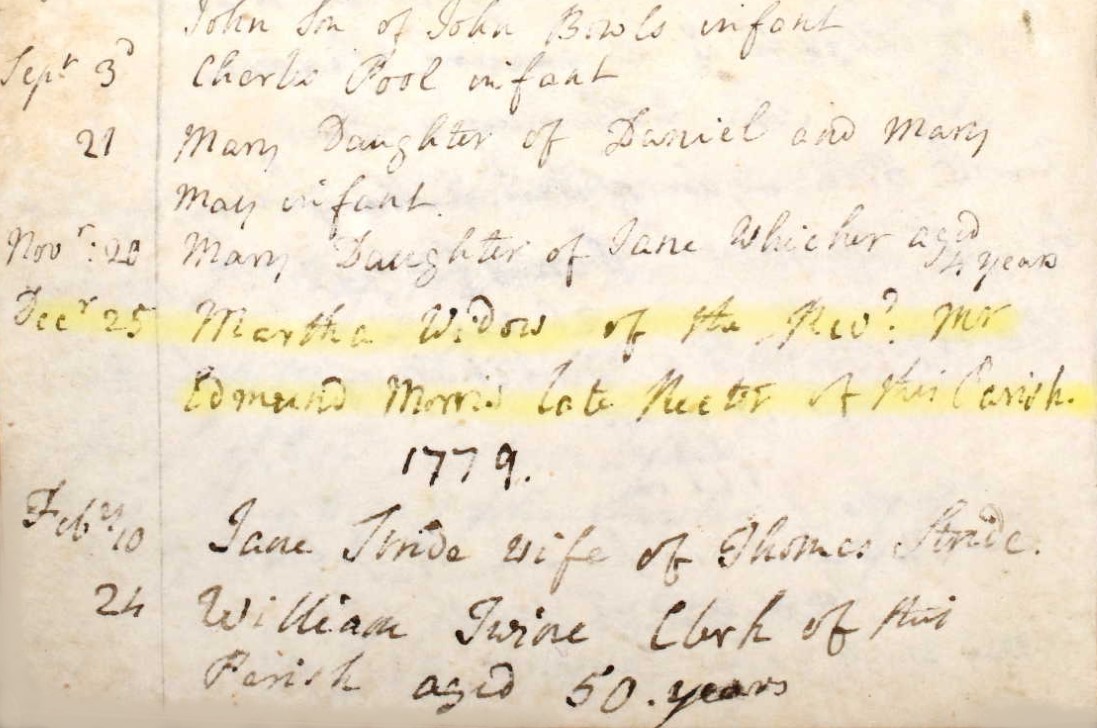 John Son of John Bowls infant
Sept 3d Charls Pool infant
21 Mary Daughter of Daniel and Mary
May infant.
Novr: 20 Mary Daughter of Jane Whicher aged
4 years
Decr 25 Martha Widow of the Revd: Mr
Edmund Morris late Rector of this Parish.
1779.
Feby 10 Jane Stride wife of Thomas Stride.
24 William Twine Clerk of this
Parish aged 50. years